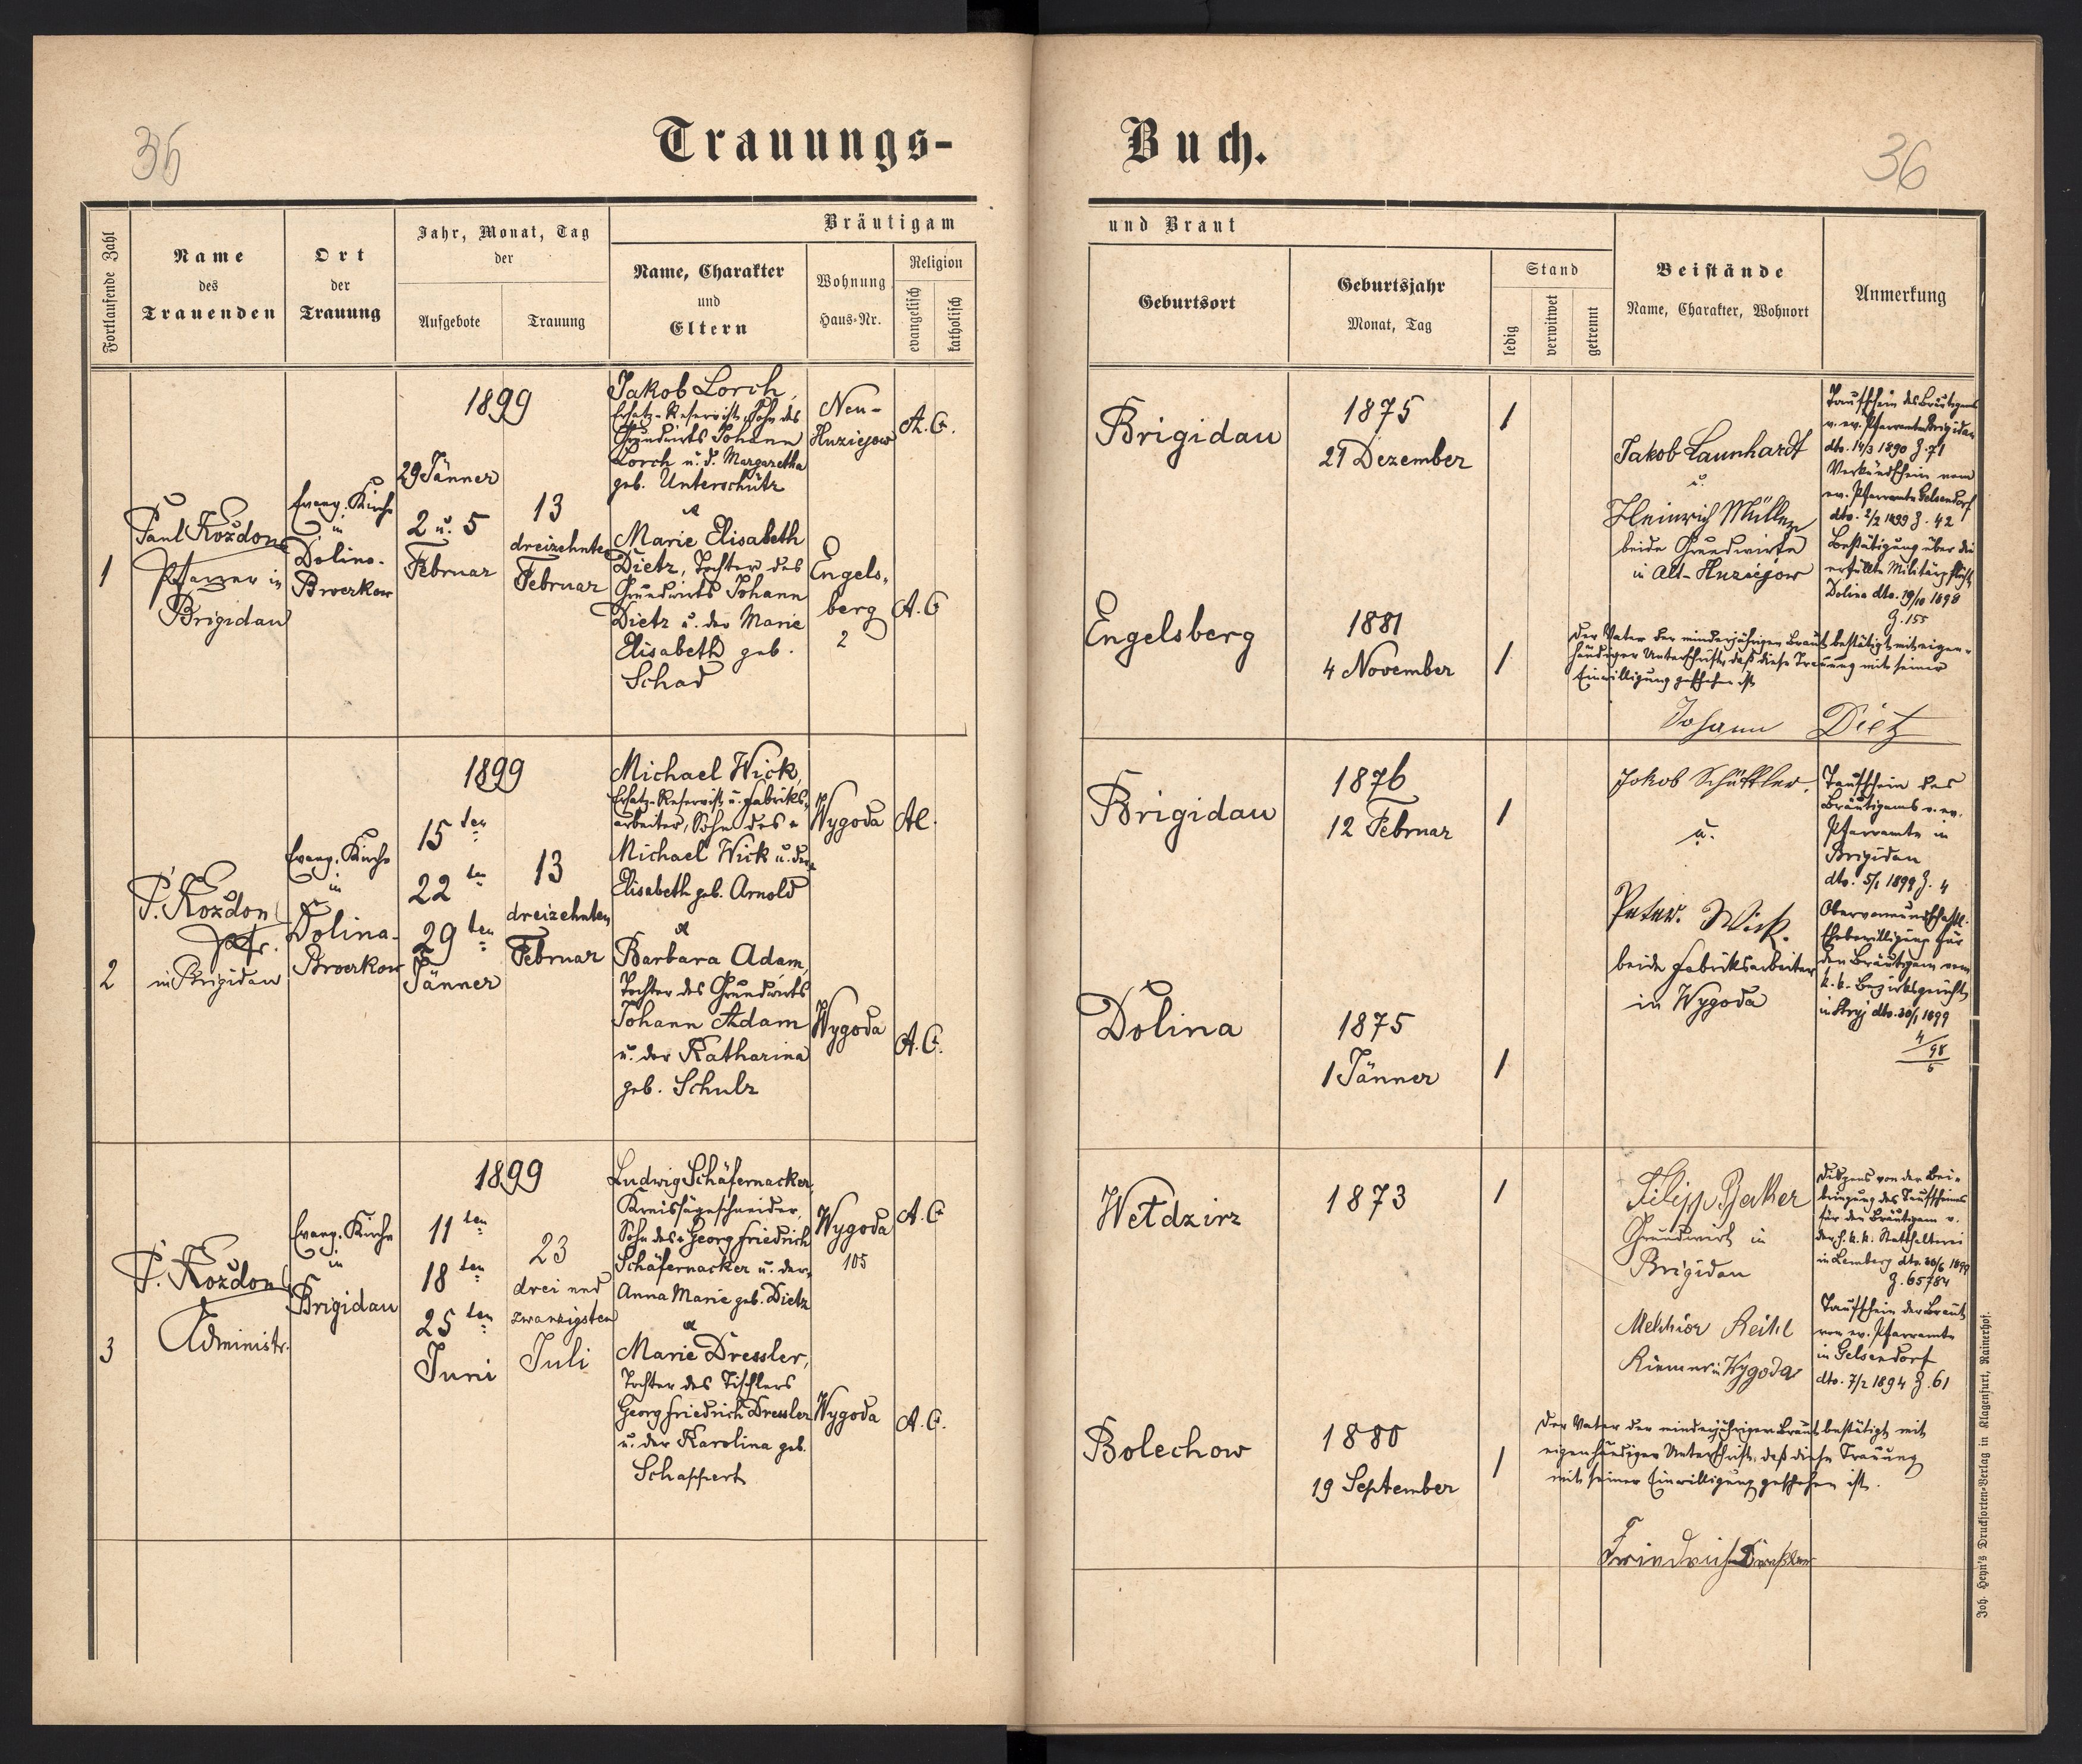 36
Trauungs-
Fortlaufende Zahl
Name
des
Trauenden
Ort
der
Trauung
Jahr, Monat, Tag
der
Aufgebote
Trauung
Bräutigam
Name, Charakter
und
Eltern
Wohnung
Haus-Nr.
Religion
evangelisch
katholisch
1
Paul Kozdon
Pfarrer in
Brigidau
Evang. Kirche
in
Dolina-
Broczkow
1899
29 Jänner
2 u. 5
Februar
13
dreizehnten
Februar
Jakob Lorch,
Ersatz-Reservist, Sohn des
Grundwirts Johann
Lorch u. d. Margaretha
geb. Unterschütz
Marie Elisabeth
Dietz, Tochter des
Grundwirts Johann
Dietz u. der Marie
Elisabeth geb.
Schad
Neu-
Huziejow
Engels-
berg
2
A.C.
A.C
2
P. Kozdon
Pfr.
in Brigidau
Evang. Kirche
in
Dolina-
Broczkow
1899
15ten
22ten
29ten
Jänner
13
dreizehnten
Februar
Michael Wick,
Ersatz-Reservist u. Fabriks-
arbeiter, Sohn des
Michael Wick u. der
Elisabeth geb. Arnold
Barbara Adam,
Tochter des Grundwirts
Johann Adam
u. der Katharina
geb. Schulz
Wygoda
Wygoda
A.C.
3
P. Kozdon
Administr.
Evang. Kirche
in
Brigidau
1899
11ten
18ten
25ten
Juni
23
drei und
zwanzigsten
Juli
Ludwig Schäfernacker,
Kreissägeschneider,
Sohn des Georg Friedrich
Schäfernacker u. der
Anna Marie geb. Dietz
Marie Dressler,
Tochter des Tischlers
Georg Friedrich Dressler
u. der Karolina geb.
Schappert
Wygoda
105
Wygoda
A.C
A.C.
36
Buch.
und Braut
Geburtsort
Geburtsjahr
Monat, Tag
Stand
ledig
verwitwet
getrennt
Beistände
Name, Charakter, Wohnort
Anmerkung
Brigidau
1875
21 Dezember
1
Engelsberg
1881
4 November
1
Jakob Launhardt
u.
Heinrich Müller
beide Grundwirte
in Alt-Huziejow
Taufschein des Bräutigams
v. ev. Pfarramte Brigidau
dto. 14/3 1890 Z. 71
Verkündschein vom
ev. Pfarramte Gelsendorf
dto. 2/2 1899 Z. 42
Bestätigung über die
erfüllte Militärpflicht
Dolina dto. 19/10 1898
Z. 155
Der Vater der minderjährigen Braut bestätigt mit eigen-
händiger Unterschrift, daß diese Trauung mit seiner
Einwilligung geschehen ist
Johann Dietz
Brigidau
1876
12 Februar
1
Dolina
1875
1 Jänner
1
Jakob Schüttler,
u.
Peter Wick.
beide Fabriksarbeiter
in Wygoda
Taufschein des
Bräutigams v. ev.
Pfarramte in
Brigidau
dto. 5/1 1899 Z. 4
Obervormundschaftl.
Ehebewilligung für
den Bräutigam vom
k.k. Bezirksgericht
in Stryj dto. 30/1 1899
Wełdzirz
1873
1
Bolechow
1880
19 September
1
Filipp Becker
Grundwirt in
Brigidau
Melchior Reihl
Riemer in Wygoda
Dispens von der Bei-
bringung des Taufscheines
für den Bräutigam v.
der h. k.k. Statthalterei
in Lemberg dto. 30/6 1899
Z. 65784
Taufschein der Braut
vom ev. Pfarramte
in Gelsendorf
dto. 7/2 1894 Z. 61
Der Vater der minderjährigen Braut bestätigt mit
eigenhändiger Unterschrift, daß diese Trauung
mit seiner Einwilligung geschehen ist.
Friedrich Dreßler
Joh. Heyn's Drucksorten-Verlag in Klagenfurt, Rainerhof.